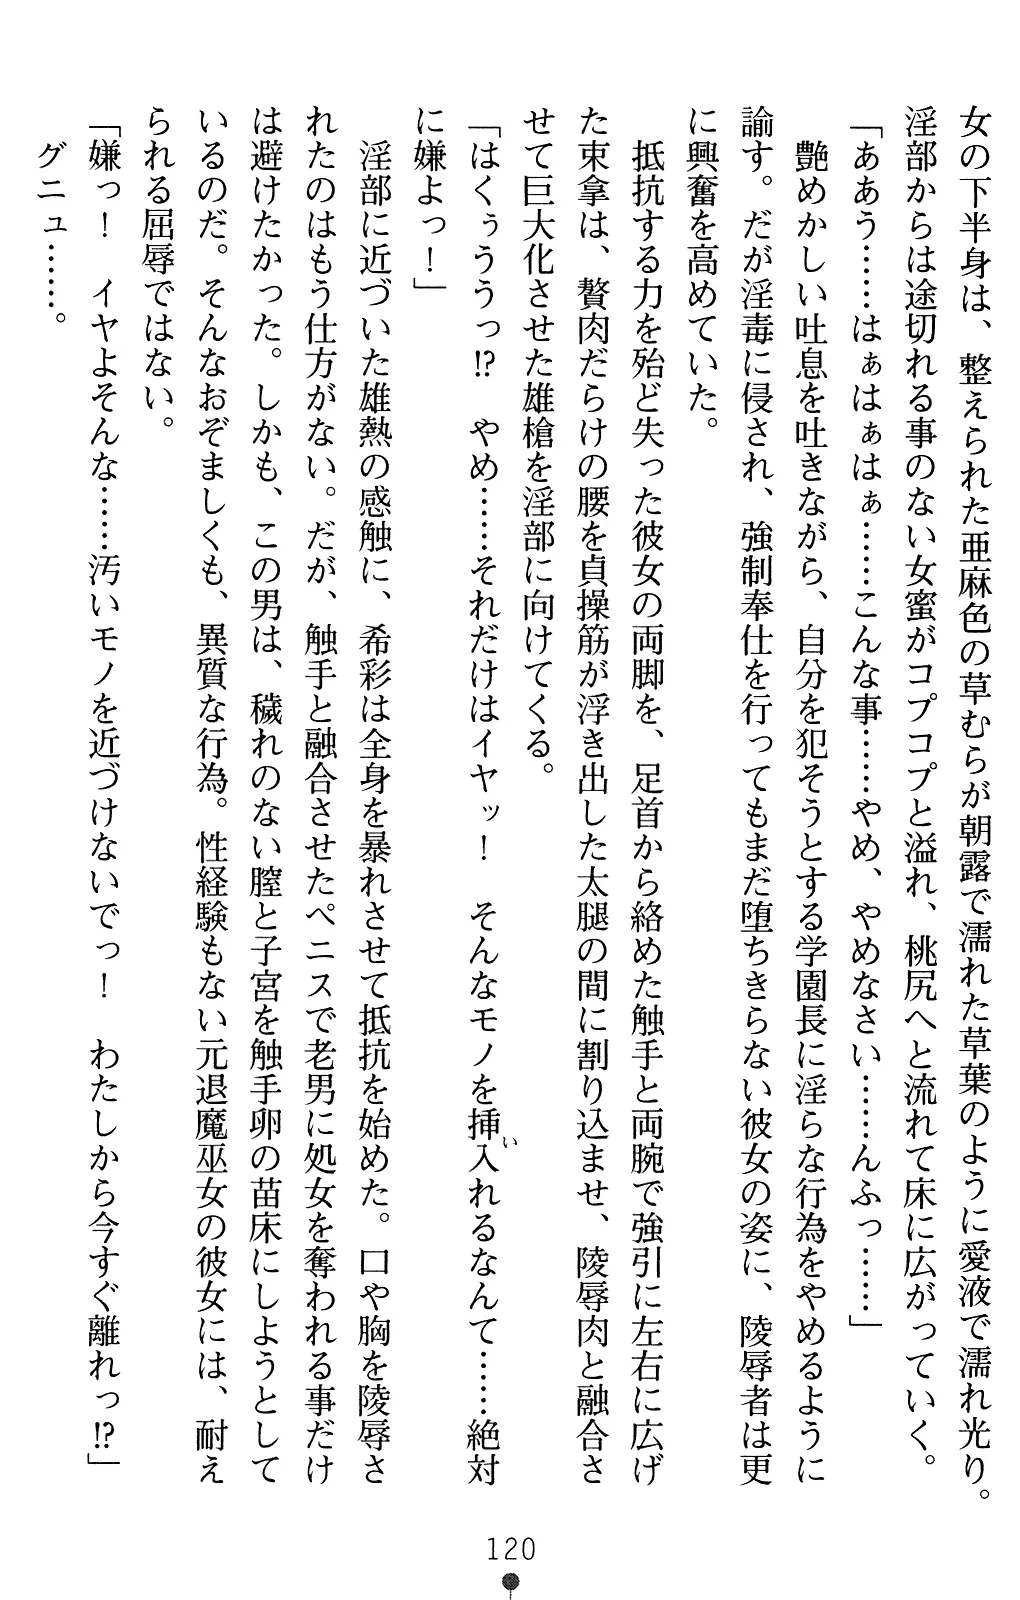 女の下半身は、整えられた亜麻色の草むらが朝露で濡れた草葉のように愛液で濡れ光り。
淫部からは途切れる事のない女蜜がコプコプと溢れ、桃尻へと流れて床に広がっていく。
「ああう……はぁはぁはぁ……こんな事……やめ、やめなさい……んふっ……」
艶めかしい吐息を吐きながら、自分を犯そうとする学園長に淫らな行為をやめるように
諭す。だが淫毒に侵され、強制奉仕を行ってもまだ堕ちきらない彼女の姿に、陵辱者は更
に興奮を高めていた。
抵抗する力を殆ど失った彼女の両脚を、足首から絡めた触手と両腕で強引に左右に広げ
た束拿は、贅肉だらけの腰を貞操筋が浮き出した太腿の間に割り込ませ、陵辱肉と融合さ
せて巨大化させた雄槍を淫部に向けてくる。
「はくぅううっ!?　やめ……それだけはイヤッ！　そんなモノを挿入れるなんて……絶対
に嫌よっ！」
淫部に近づいた雄熱の感触に、希彩は全身を暴れさせて抵抗を始めた。口や胸を陵辱さ
れたのはもう仕方がない。だが、触手と融合させたペニスで老男に処女を奪われる事だけ
は避けたかった。しかも、この男は、穢れのない膣と子宮を触手卵の苗床にしようとして
いるのだ。そんなおぞましくも、異質な行為。性経験もない元退魔巫女の彼女には、耐え
られる屈辱ではない。
「嫌っ！　イヤよそんな……汚いモノを近づけないでっ！　わたしから今すぐ離れっ!?」
グニュ……。
い
120